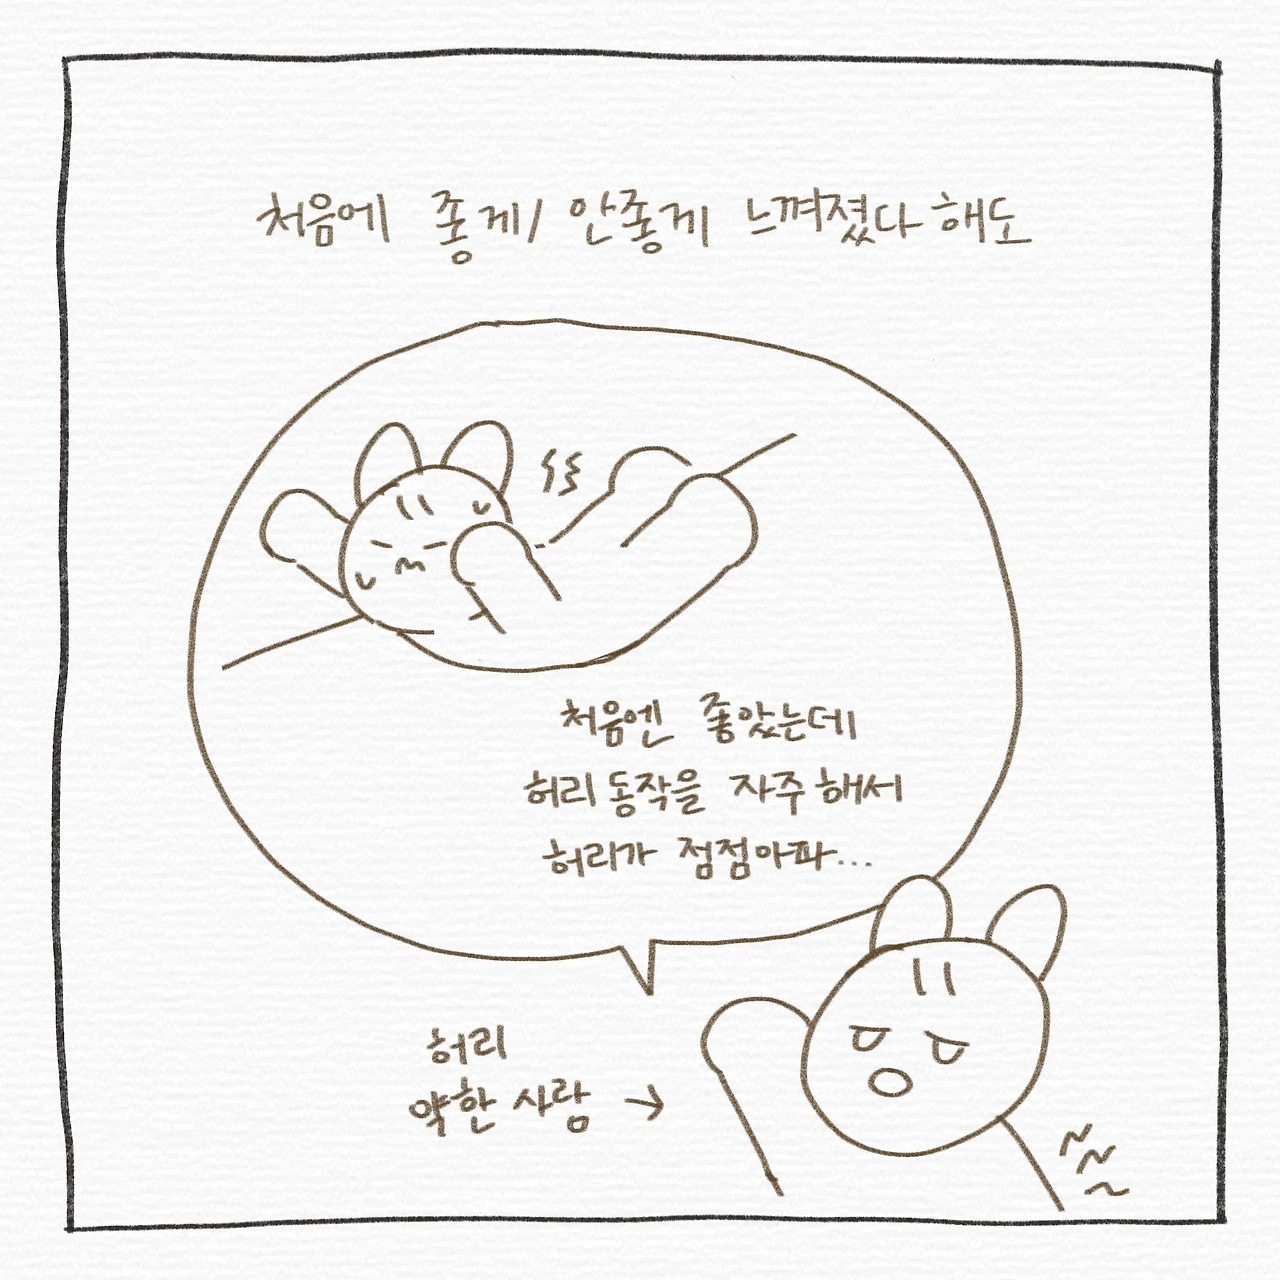 처음에 좋게/ 안좋게 느껴졌다 해도
처음엔 좋았는데
허리 동작을 자주 해서
허리가 점점아파...
허리
약한 사람 →